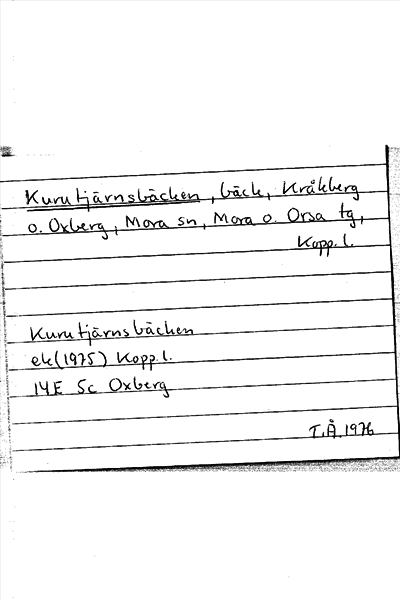 Kurutjärnsbäcken, bäck, Kråkberg
o. Oxberg, Mora sn, Mora o. Orsa tg,
Kopp. l.
Kurutjärnsbäcken
ek (1975) Kopp. l.
14E 5c Oxberg
T.Å. 1976